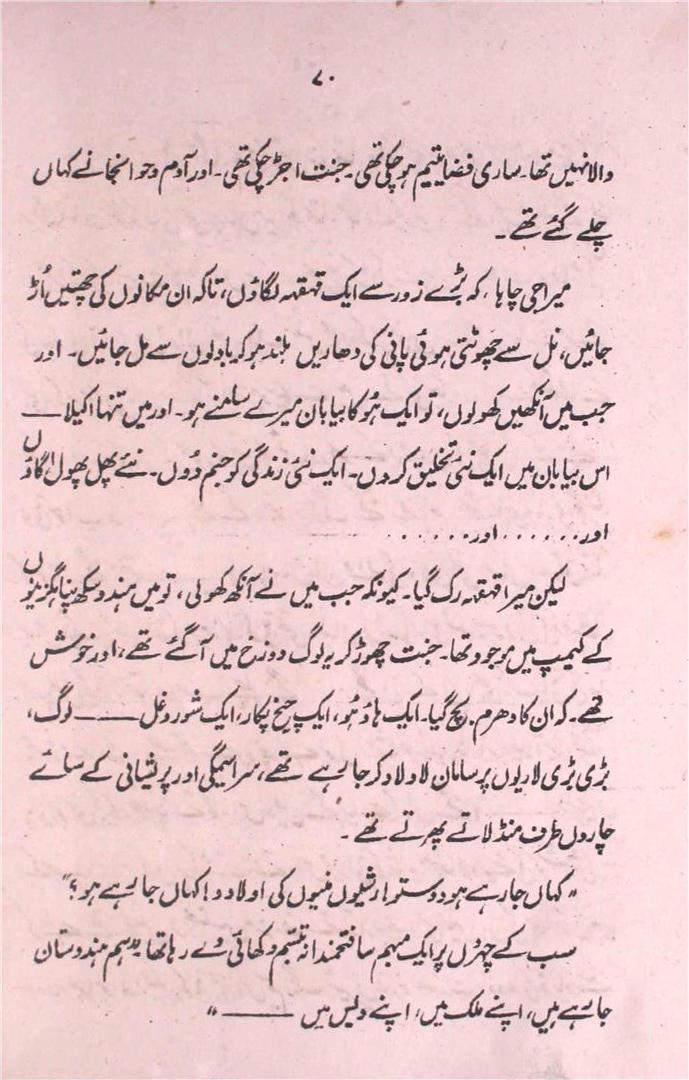 ۷۰
والا نہیں تھا۔ ساری فضا یتیم ہو چکی تھی۔ جنت اجڑ چکی تھی۔ اور آدم و حوا انجانے کہاں
چلے گئے تھے۔
میرا جی چاہا، کہ بڑے زور سے ایک قہقہہ لگاؤں، تاکہ ان مکانوں کی چھتیں اُڑ
جائیں، نل سے چھوٹتی ہوئی پانی کی دھاریں بلند ہو کر بادلوں سے مل جائیں۔ اور
جب میں آنکھیں کھولوں، تو ایک ہُو کا بیابان میرے سامنے ہو۔ اور میں تنہا اکیلا ——
اس بیابان میں ایک نئی تخلیق کر دوں۔ ایک نئی زندگی کو جنم دوں۔ نئے پھل پھول اگاؤں
اور......اور......
لیکن میرا قہقہہ رک گیا۔ کیونکہ جب میں نے آنکھ کھولی، تو میں ہندو سکھ پناہ گزینوں
کے کیمپ میں موجود تھا۔ جنت چھوڑ کر یہ لوگ دوزخ میں آ گئے تھے، اور خوش
تھے۔ کہ ان کا دھرم بچ گیا۔ ایک ہاؤ ہُو، ایک چیخ پکار، ایک شور و غل —— لوگ،
بڑی بڑی لاریوں پر سامان لاد لاد کر جا رہے تھے، سراسیمگی اور پریشانی کے سائے
چاروں طرف منڈلاتے پھرتے تھے۔
"کہاں جا رہے ہو دوستو! رشیوں منیوں کی اولادو! کہاں جا رہے ہو؟"
سب کے چہروں پر ایک مبہم سا فتحمندانہ تبسم دکھائی دے رہا تھا "ہم ہندوستان
جا رہے ہیں، اپنے ملک میں، اپنے دیس میں ——"